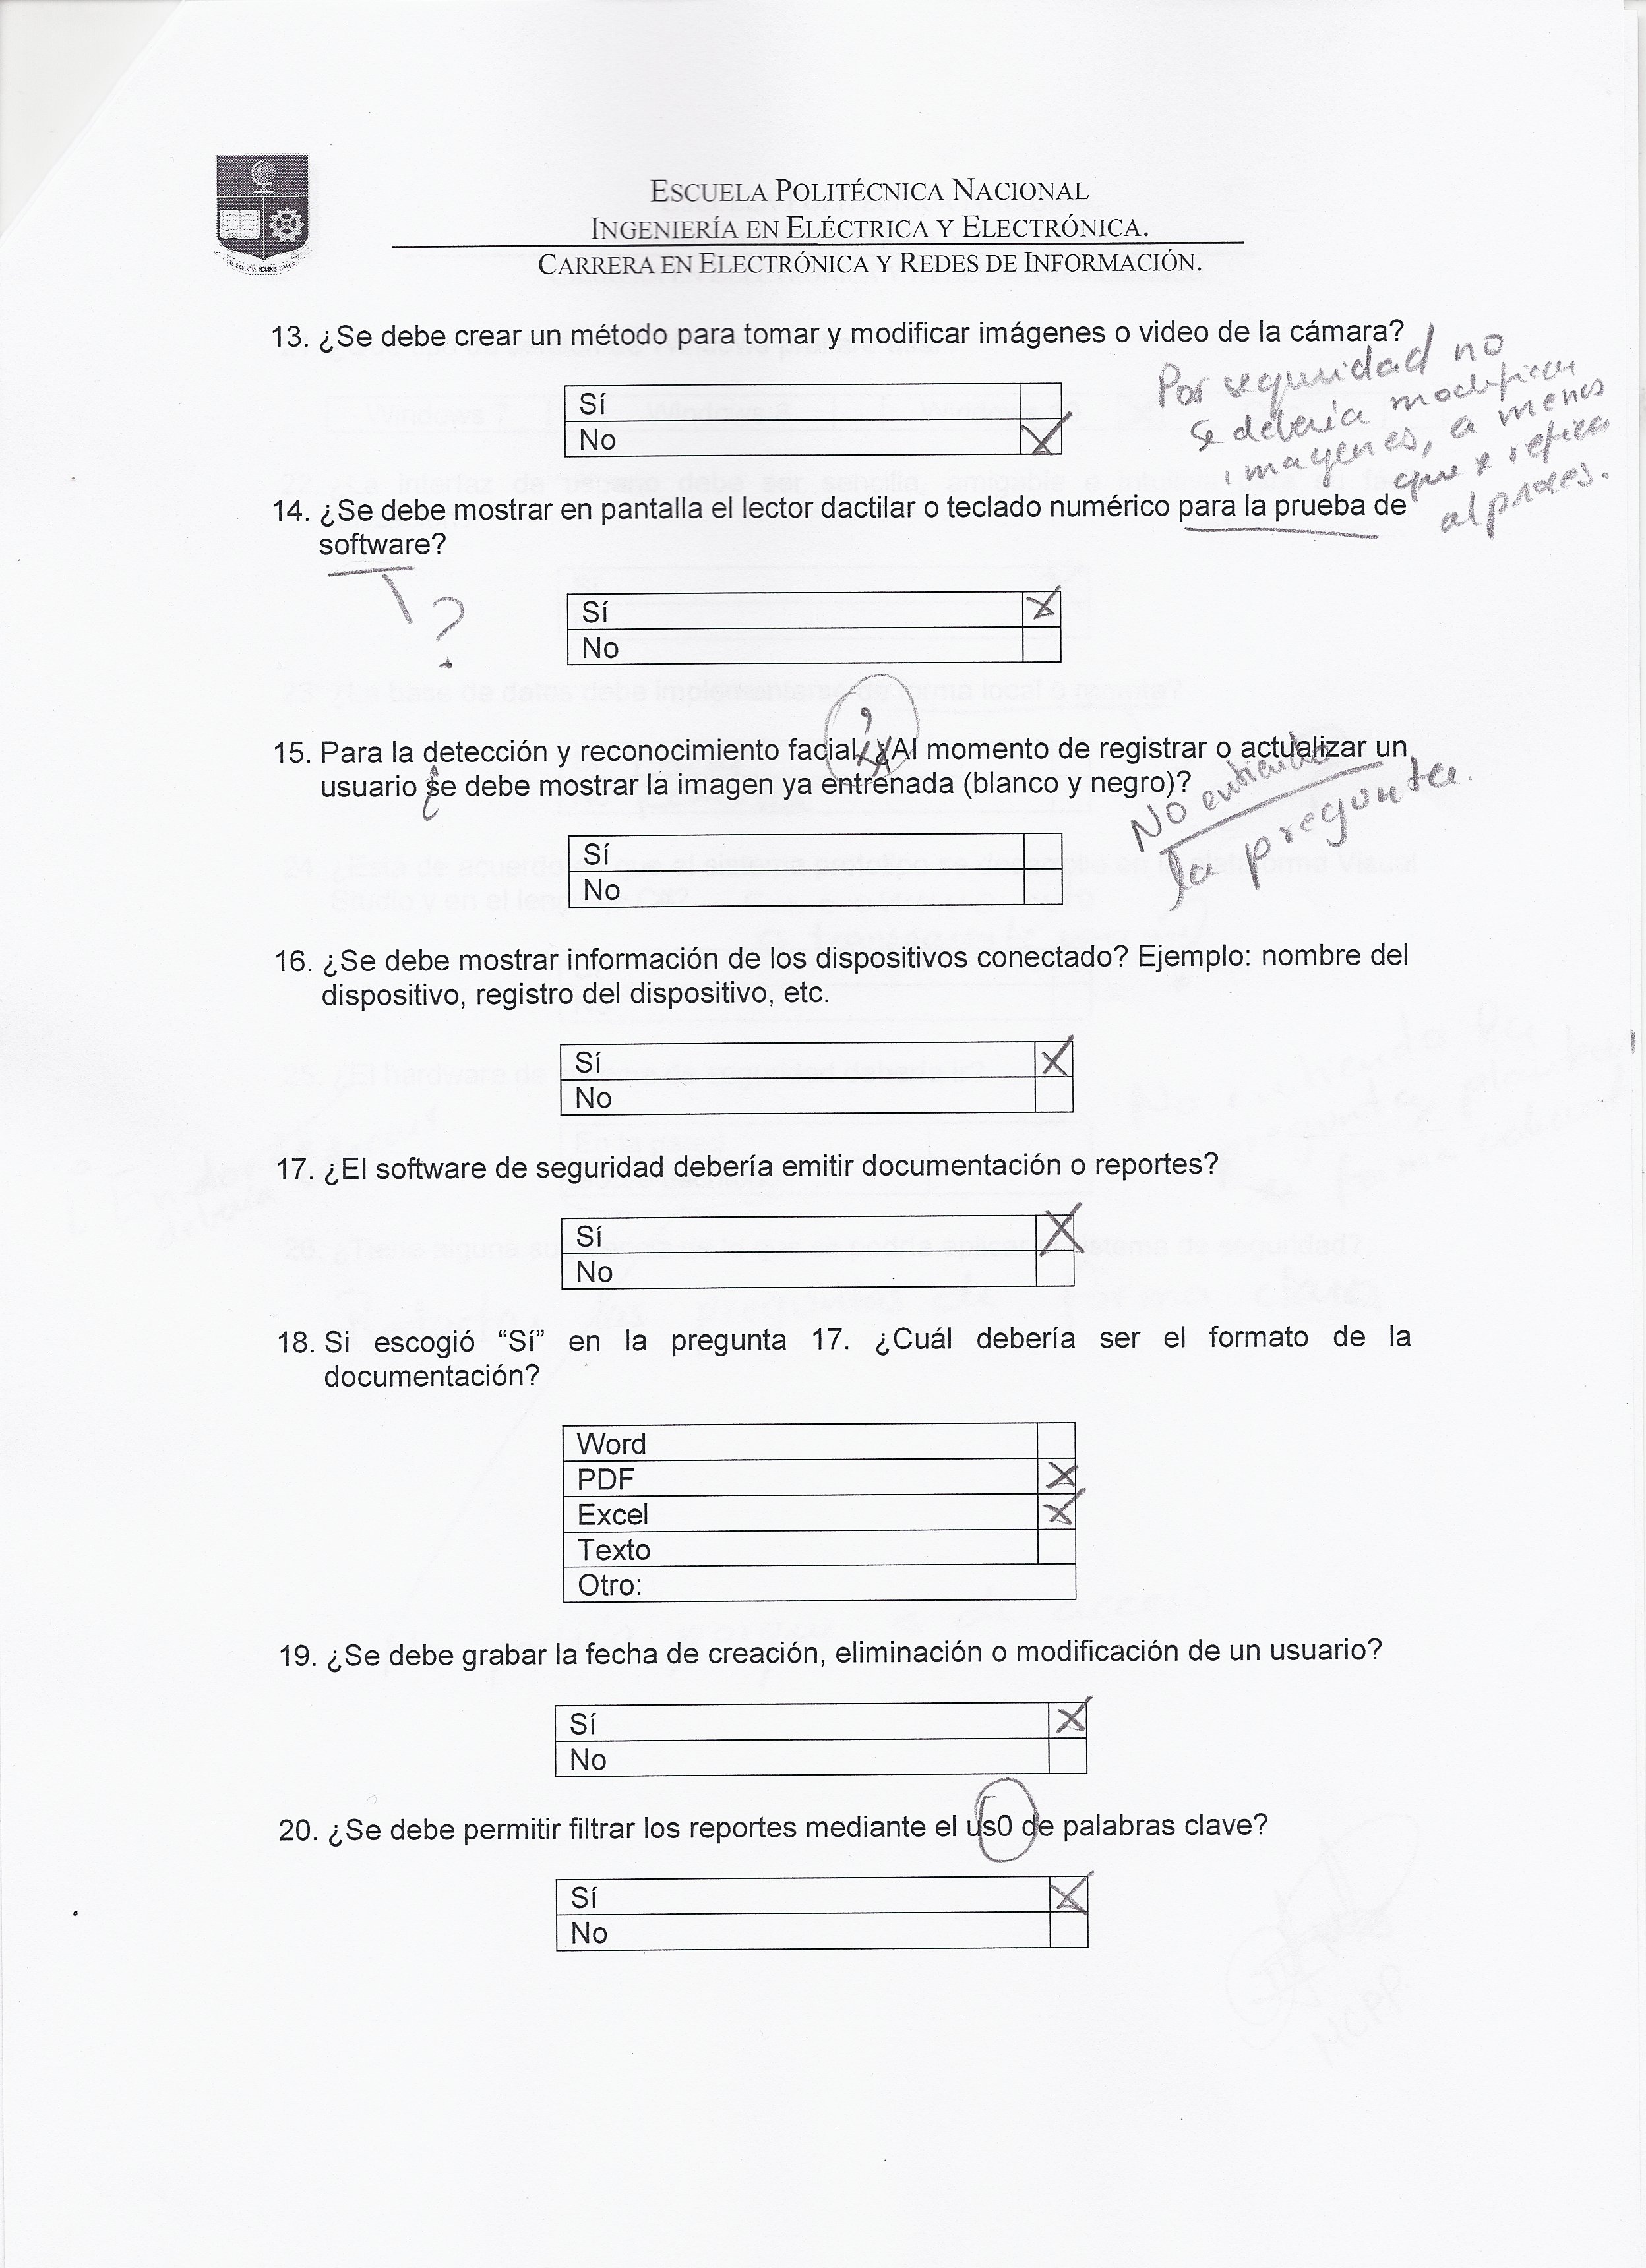 ESCUELA POLITÉCNICA NACIONAL
INGENIERÍA EN ELÉCTRICA Y ELECTRÓNICA.
CARRERA EN ELECTRÓNICA Y REDES DE INFORMACIÓN.
13. ¿Se debe crear un método para tomar y modificar imágenes o video de la cámara?
Por seguridad no
se debería modificar
imagenes, a menos
que se refiera
al
Sí
No X
14. ¿Se debe mostrar en pantalla el lector dactilar o teclado numérico para la prueba de
software?
?
Sí X
No
15. Para la detección y reconocimiento facial, ¿Al momento de registrar o actualizar un
usuario se debe mostrar la imagen ya entrenada (blanco y negro)?
No entiendo
la pregunta.
Sí
No
16. ¿Se debe mostrar información de los dispositivos conectado? Ejemplo: nombre del
dispositivo, registro del dispositivo, etc.
Sí X
No
17. ¿El software de seguridad debería emitir documentación o reportes?
Sí X
No
18. Si escogió “Sí” en la pregunta 17. ¿Cuál debería ser el formato de la
documentación?
Word
PDF X
Excel X
Texto
Otro:
19. ¿Se debe grabar la fecha de creación, eliminación o modificación de un usuario?
Sí X
No
20. ¿Se debe permitir filtrar los reportes mediante el us0 de palabras clave?
Sí X
No